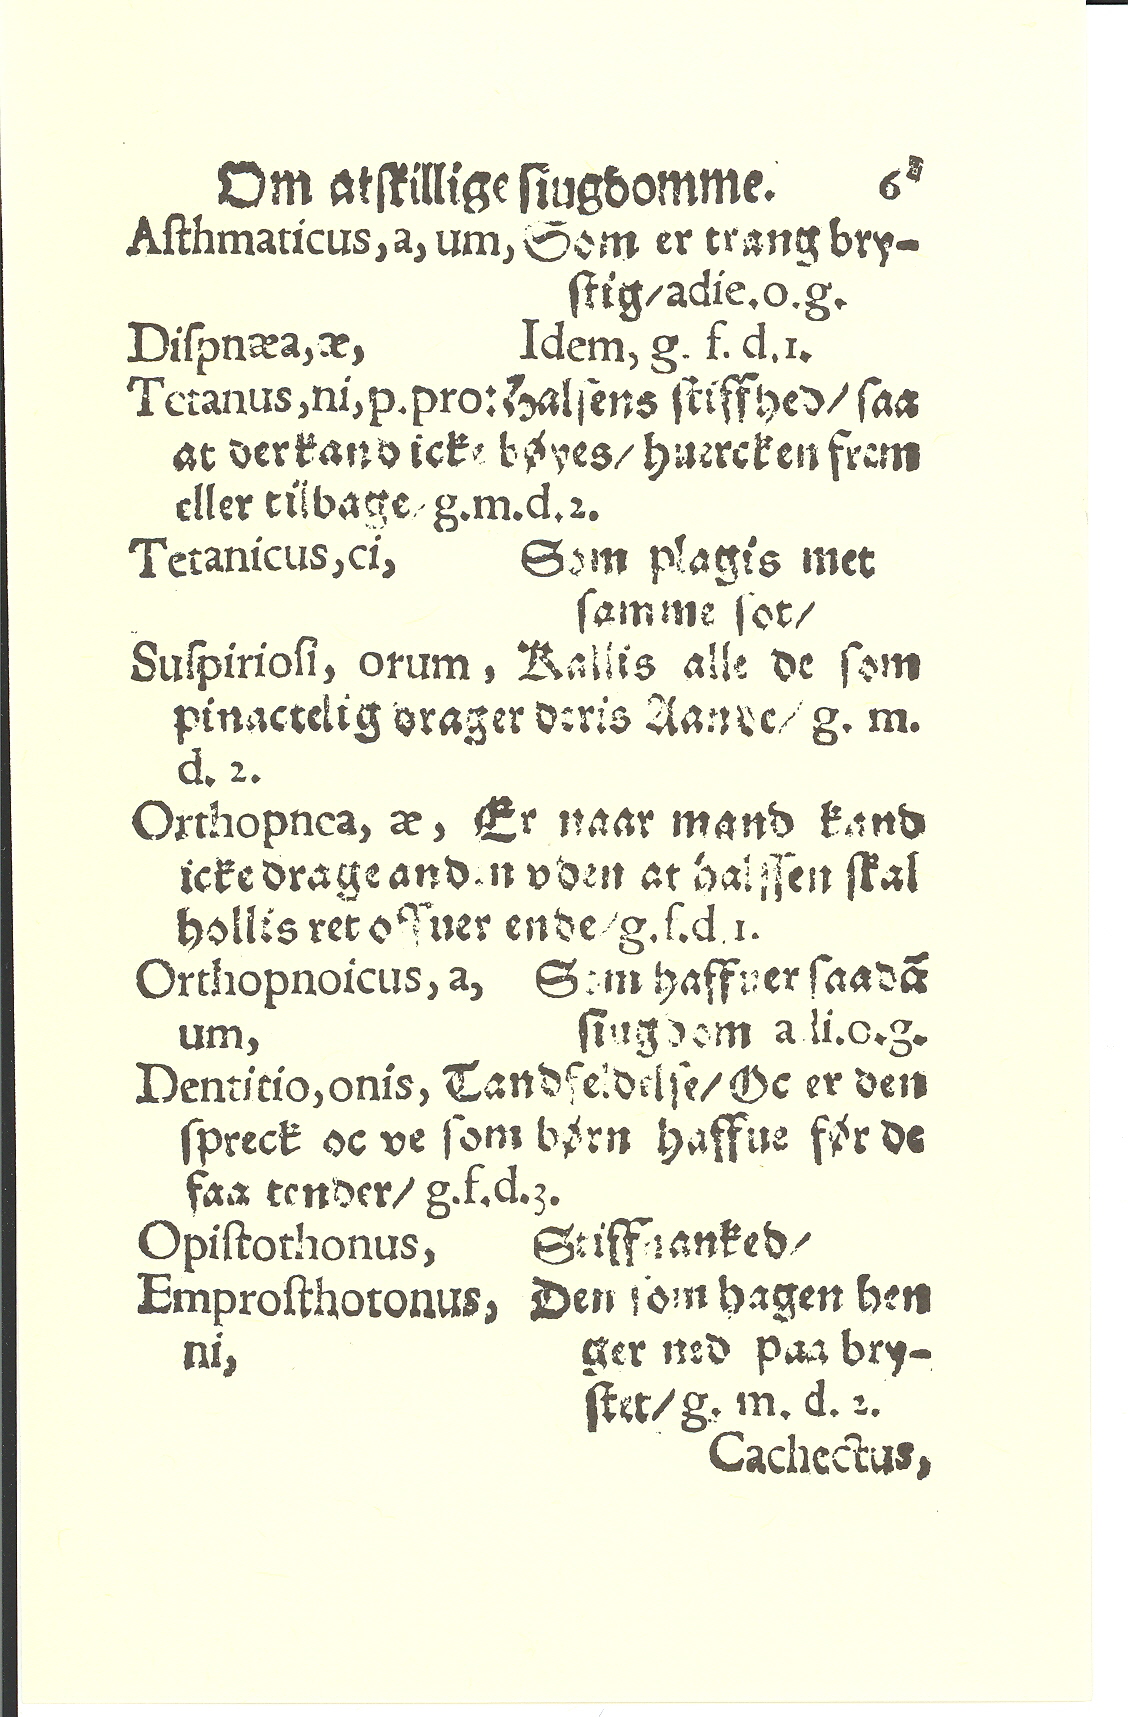 Om atſkillige ſiugdomme. 6
Aſthmaticus, a, um, Som er trang bry-
ſtig/ adie. o. g.
Diſpnæa, æ, Idem, g. f. d. 1.
Tetanus, ni, p. pro: Halſens ſtiffhed/ ſaa
at der kand icke bøyes/ huercken frem
eller tilbage/ g. m. d. 2.
Tetanicus, ci, Som plagis met
ſamme ſot/
Suſpirioſi, orum, Kallis alle de ſom
pinactelig drager deris Aande/ g. m.
d. 2.
Orthopnea, æ, Er naar mand kand
icke drage anden vden at halſſen ſkal
hollis ret offuer ende/ g. f. d. 1.
Orthopnoicus, a, Som haffuer ſaadã
um, ſiugdom adi. o. g.
Dentitio, onis, Tandfeldelſe/ Oc er den
ſpreck oc ve ſom børn haffue før de
faa tender/ g. f. d. 3.
Opiſtothonus, Stiffnanked/
Emproſthotonus, Den ſom hagen hen
ni, ger ned paa bry-
ſtet/ g. m. d. 2.
Cachectus,